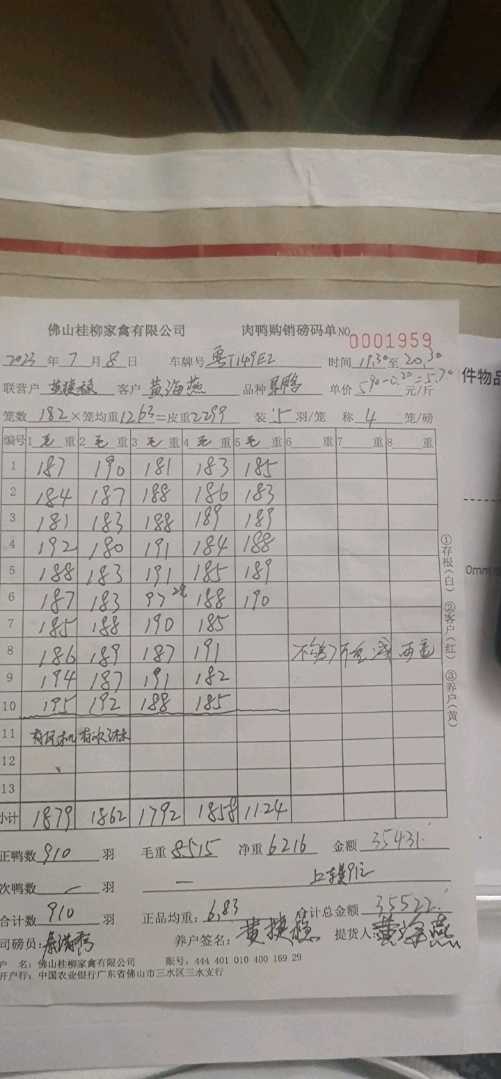 佛山桂柳家禽有限公司 肉鸭购销磅码单 NO 0001959
2023 年 7 月 8 日 车牌号 粤T149E2 时间 19.30 至 20.30
联营户 黄捷稳 客户 黄海燕 品种 单价 5.90-0.20=5.70 元/斤
笼数 182 ×笼均重 12.63 =皮重 2299 装 5 羽/笼 称 4 笼/磅
编号 1 毛 重 2 毛 重 3 毛 重 4 毛 重 5 毛 重 6 重 7 重 8 重
1 187 190 181 183 185
2 184 187 188 186 183
3 181 183 188 189 189
4 192 180 191 184 188
5 188 183 191 185 189
6 187 183 97 2笼 188 190
7 185 188 190 185
8 186 189 187 191
9 194 187 191 182
10 195 192 188 185
11
12
13
小计 1879 1862 1792 1858 1124
正鸭数 910 羽 毛重 8515 净重 6216 金额 35431.
次鸭数 — 羽 —
合计数 910 羽 正品均重: 6.83 合计总金额 35522.
司磅员: 养户签名: 黄捷稳 提货人: 黄海燕
户 名: 佛山桂柳家禽有限公司 账号: 444 401 010 400 169 29
开户行: 中国农业银行广东省佛山市三水区三水支行
①存根(白) ②客户(红) ③养户(黄)
件物品
0mm